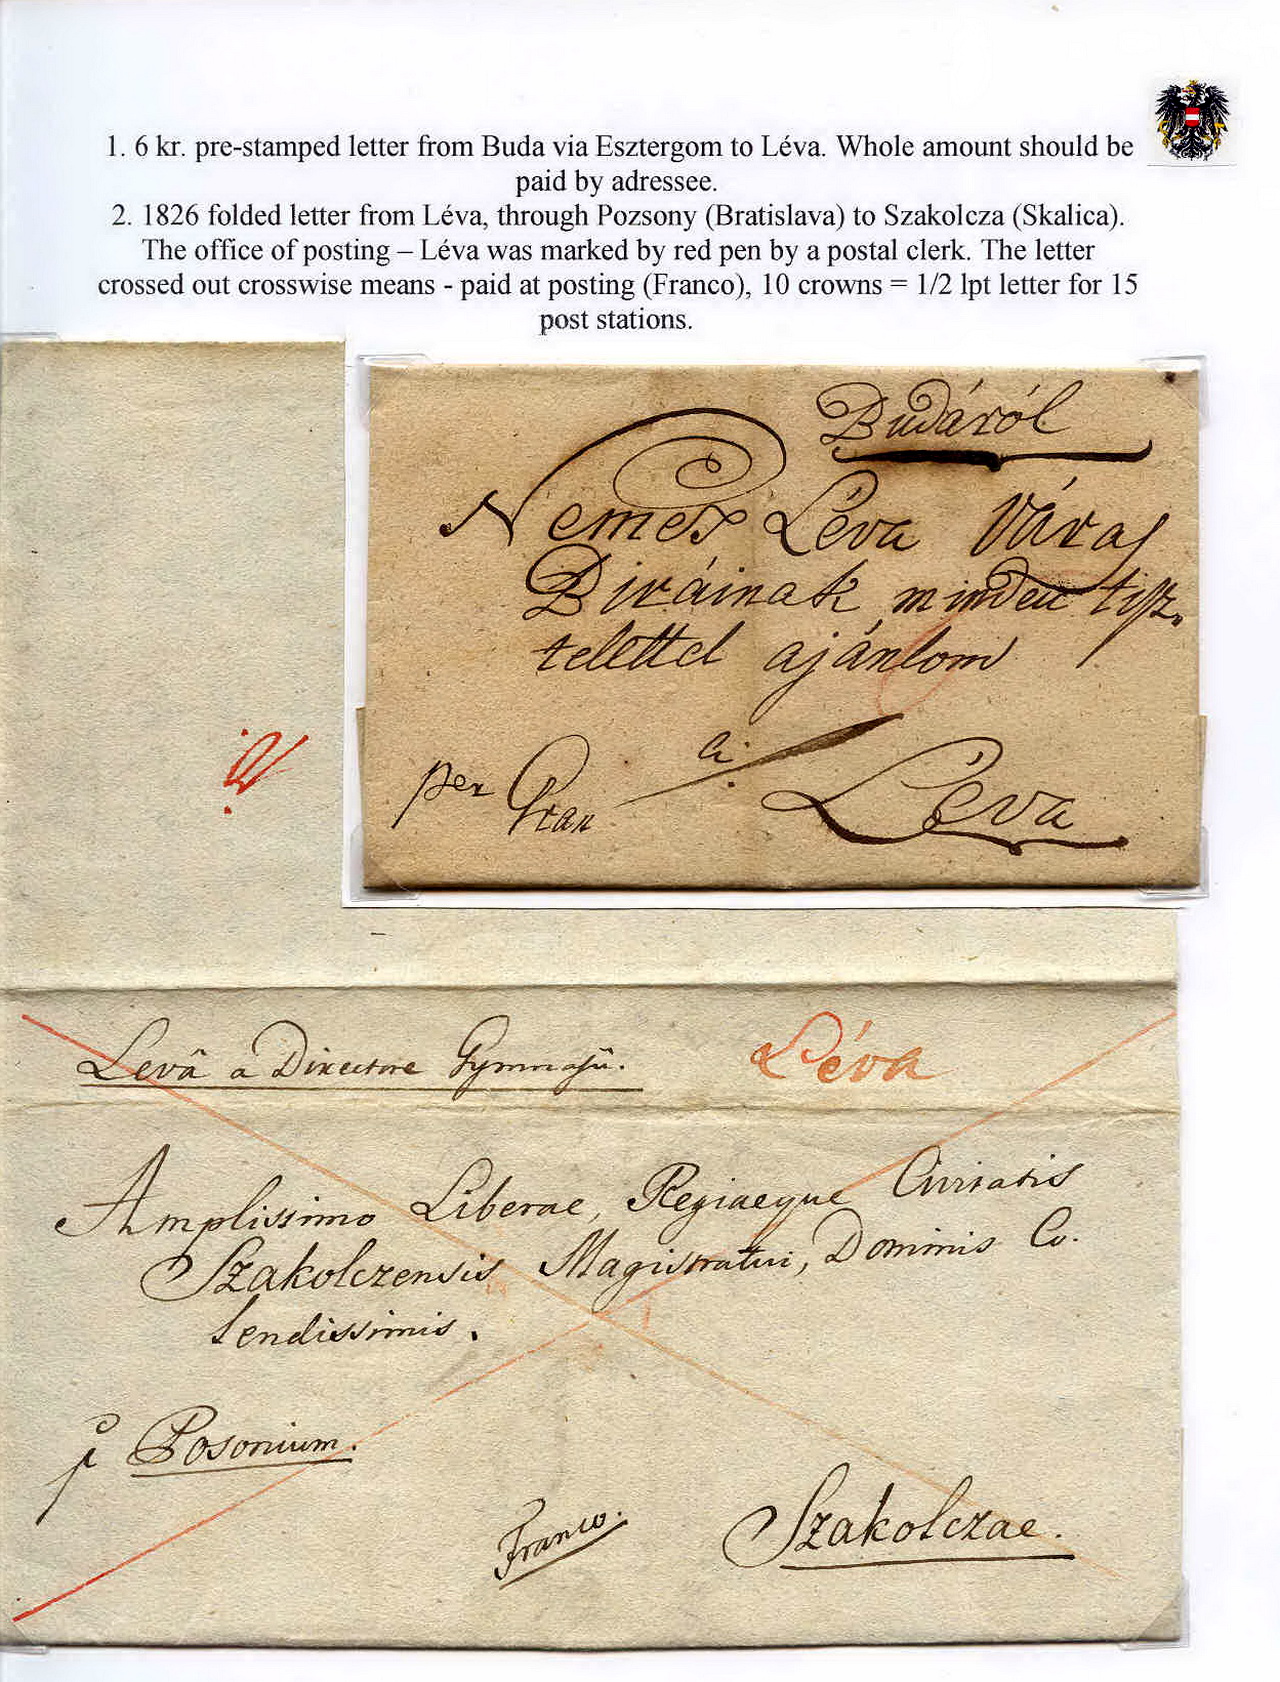 1. 6 kr. pre-stamped letter from Buda via Esztergom to Léva. Whole amount should be
paid by adressee.
2. 1826 folded letter from Léva, through Pozsony (Bratislava) to Szakolcza (Skalica).
The office of posting – Léva was marked by red pen by a postal clerk. The letter
crossed out crosswise means - paid at posting (Franco), 10 crowns = 1/2 lpt letter for 15
post stations.
Budáról
Nemes Léva Város
Biráinak minden tisz„
telettel ajánlom
per Gran a
Léva
Levâ a Directore Gymnasii.
Léva
Amplissimo Liberae, Regiaeque Civitatis
Szakolczensis Magistratui, Dominis Co.
lendissimis.
p Posonium.
Franco.
Szakolczae.